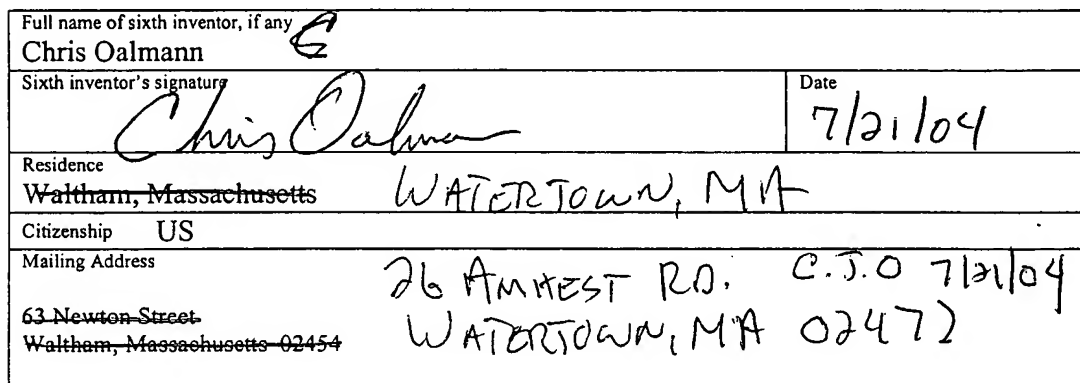 Full name of sixth inventor, if any
Chris Oalmann
Sixth inventor's signature
Chris Oalmann
Date
7/21/04
Residence
Waltham, Massachusetts WATERTOWN, MA
Citizenship US
Mailing Address
26 AMHEST RD. C.J.O 7/21/04
63 Newton Street
Waltham, Massachusetts 02454
WATERTOWN, MA 02472